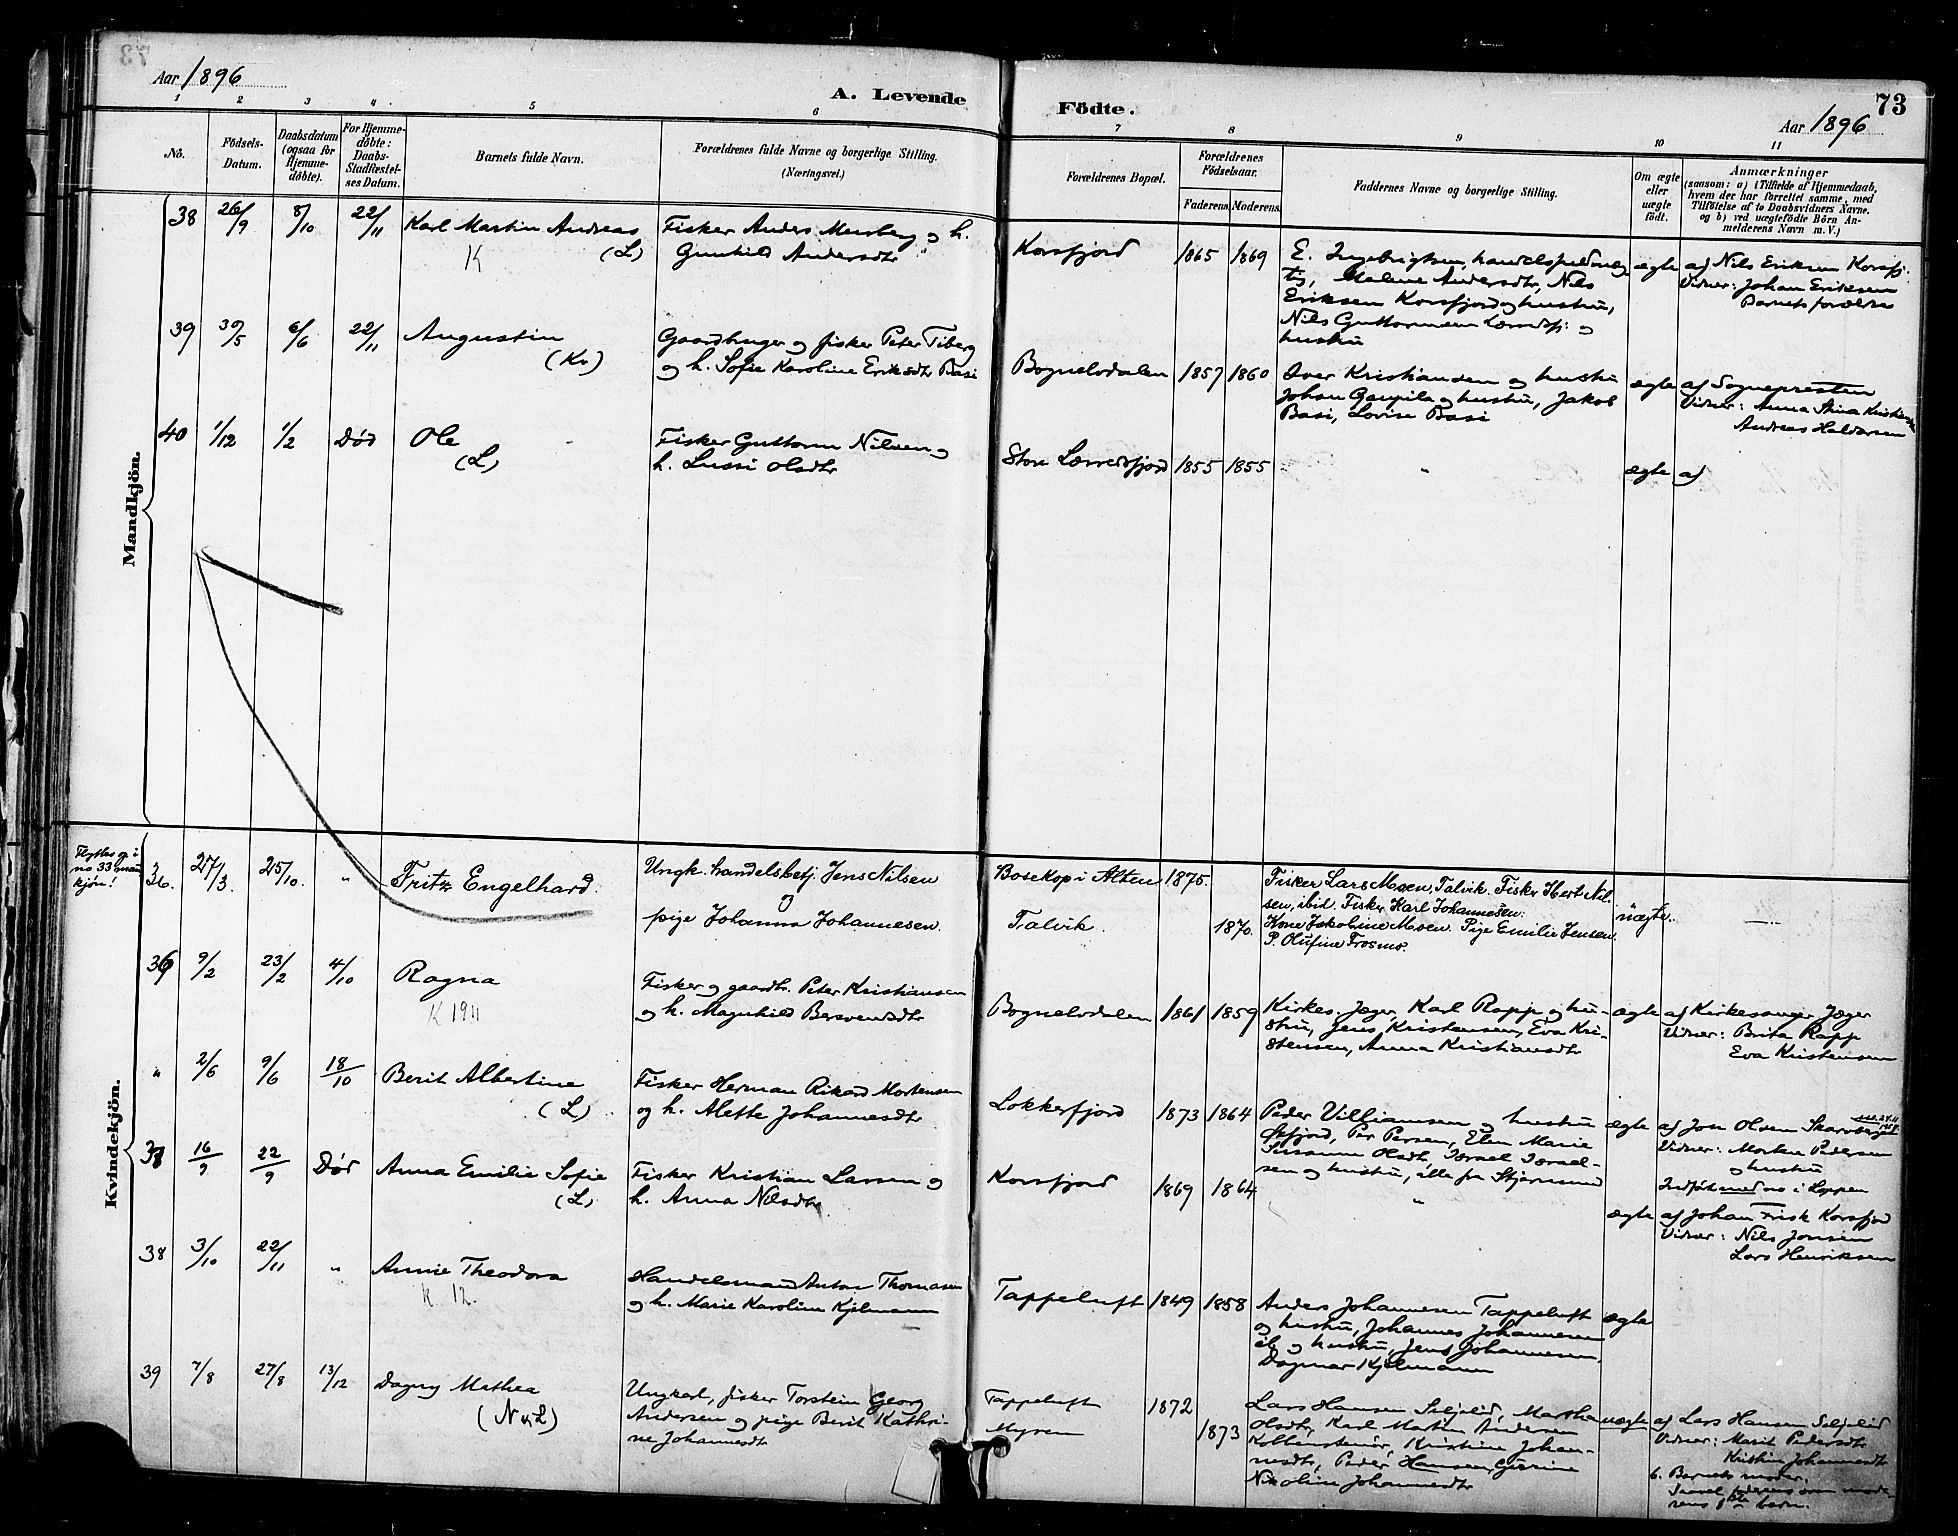 73
Aar 1896
A. Levende
Födte.
Aar 1896
1 2 3 4 5 6 7 8 9 10 11
No.
Födsels-
Datum.
Daabsdatum
(ogsaa for
Hjemme-
döbte).
For Hjemme-
döbte:
Daabs-
Stadfæstel-
ses Datum.
Barnets fulde Navn.
Forældrenes fulde Navne og borgerlige Stilling.
(Næringsvei.)
Forældrenes Bopæl.
Forældrenes
Födselsaar.
Faderens. Moderens.
Faddernes Navne og borgerlige Stilling.
Om ægte
eller
uægte
födt.
Anmærkninger
(saasom: a) i Tilfælde af Hjemmedaab,
hvem der har forrettet samme, med
Tilföielse af to Daabsvidners Navne.
og b) ved uægtefödte Börn An-
melderens Navn m. V.)
Mandkjön.
38 26/9 8/10 22/11 Karl Martin Andreas
K (L)
Fisker Anders Mersberg og h.
Gunhild Andersdtr
Korsfjord 1865 1869
E. Ingebrigtsen, handels
Malene Andersdtr, Nils
Eriksen Korsfjord og hustru,
Nils Guttormsen Lerredsfj. og
hustru
ægte
af Nils Eriksen Korsfj.
Vidner: Johan Eriksen
Barnets forældre
39 30/5 6/6 22/11 Augustin
(Kv)
Gaardbruger og fisker Peter Tiberg
og h. Sofie Karoline Eriksdtr Basi
Bognelvdalen 1857 1860
Iver Kristiansen og hustru
Johan Gaupila og hustru, Jakob
Basi, Lovise Basi
ægte
af Sognepresten
Vidner: Anna Stina
Andreas Haldorsen
40 1/12 1/2 Død Ole
(L)
Fisker Guttorm Nilsen og
h. Lussi Olsdtr
Store Lerredsfjord 1855 1855 "
ægte af
Kvindekjön.
Flyttes op i
no 33 man
kjøn!
36. 27/3. 25/10. " Fritz Engelhard.
Ungk. handelsbetj. Jens Nilsen
og
pige Johanna Johannesen.
Bosekop i Alten 1875.
Talvik. 1870.
Fisker Lars Moen, Talvik. Fisker Hert Nil-
sen, ibid. Fisker Karl Johannesen.
Kone Jakobine Moen. Pige Emilie Jensen.
P. Olufine Frosmo.
uægte. —
36 9/2 23/2 4/10 Ragna
K 1911
Fisker og gaardbr. Peter Kristiansen
og h. Magnhild Bersvendsdtr
Bognelvdalen 1861 1859
Kirkes. Jæger, Karl Rapp og hu-
stru, Jens Kristensen, Eva Kri-
stensen, Anna Kristiansdtr
ægte
af Kirkesanger Jæger
Vidner: Brita Rapp
Eva Kristensen
" 2/6 9/6 18/10 Berit Albertine
(L)
Fisker Herman Rikard Mortensen
og h. Alette Johannesdtr
Lokkerfjord 1873 1864
Peder Villiamsen og hustru
Øxfjord, Per Persen, Elen Marie
Susanne Olsdtr, Israel Israel-
sen og hustru, alle fra Stjernsund
ægte
af Jon Olsen
Vidner: Morten Pedersen
og hustru
Indført med no i Loppen
37 16/9 22/9 Død Anna Emilie Sofie
(L)
Fisker Kristian Larsen og
h. Anna Nilsdtr
Korsfjord 1869 1864 "
ægte
af Johan Frisk Korsfjord
Vidner: Nils Jonsen
Lars Henriksen
38 3/10 22/11 " Annie Theodora
K 12.
Handelsmand Anton Thomasen
og h. Marie Karoline Kjelmann
Tappeluft 1849 1858
Anders Johannesen Tappeluft
og hustru, Johannes Johannesen
ib og hustru, Jens Johannesen,
Dagmar Kjelmann
ægte
39 7/8 27/8 13/12 Dagny Mathea
(N & L)
Ungkarl, fisker Torstein Georg
Andersen og pige Berit Kathri-
ne Johannesdtr
Tappeluft 1872
Myren 1873
Lars Hansen Seljelid, Martha
Olsdtr, Karl Martin Andersen
Kristine Johan-
nesdtr, Peder Hansen, Gurine
Nikoline Johannesdtr
uægte
af Lars Hansen Seljelid
Vidner: Marit Pedersdtr
Kristine Johannesdtr
b. Barnets moder.
Saavel faderens som mode-
rens 1ste barn.